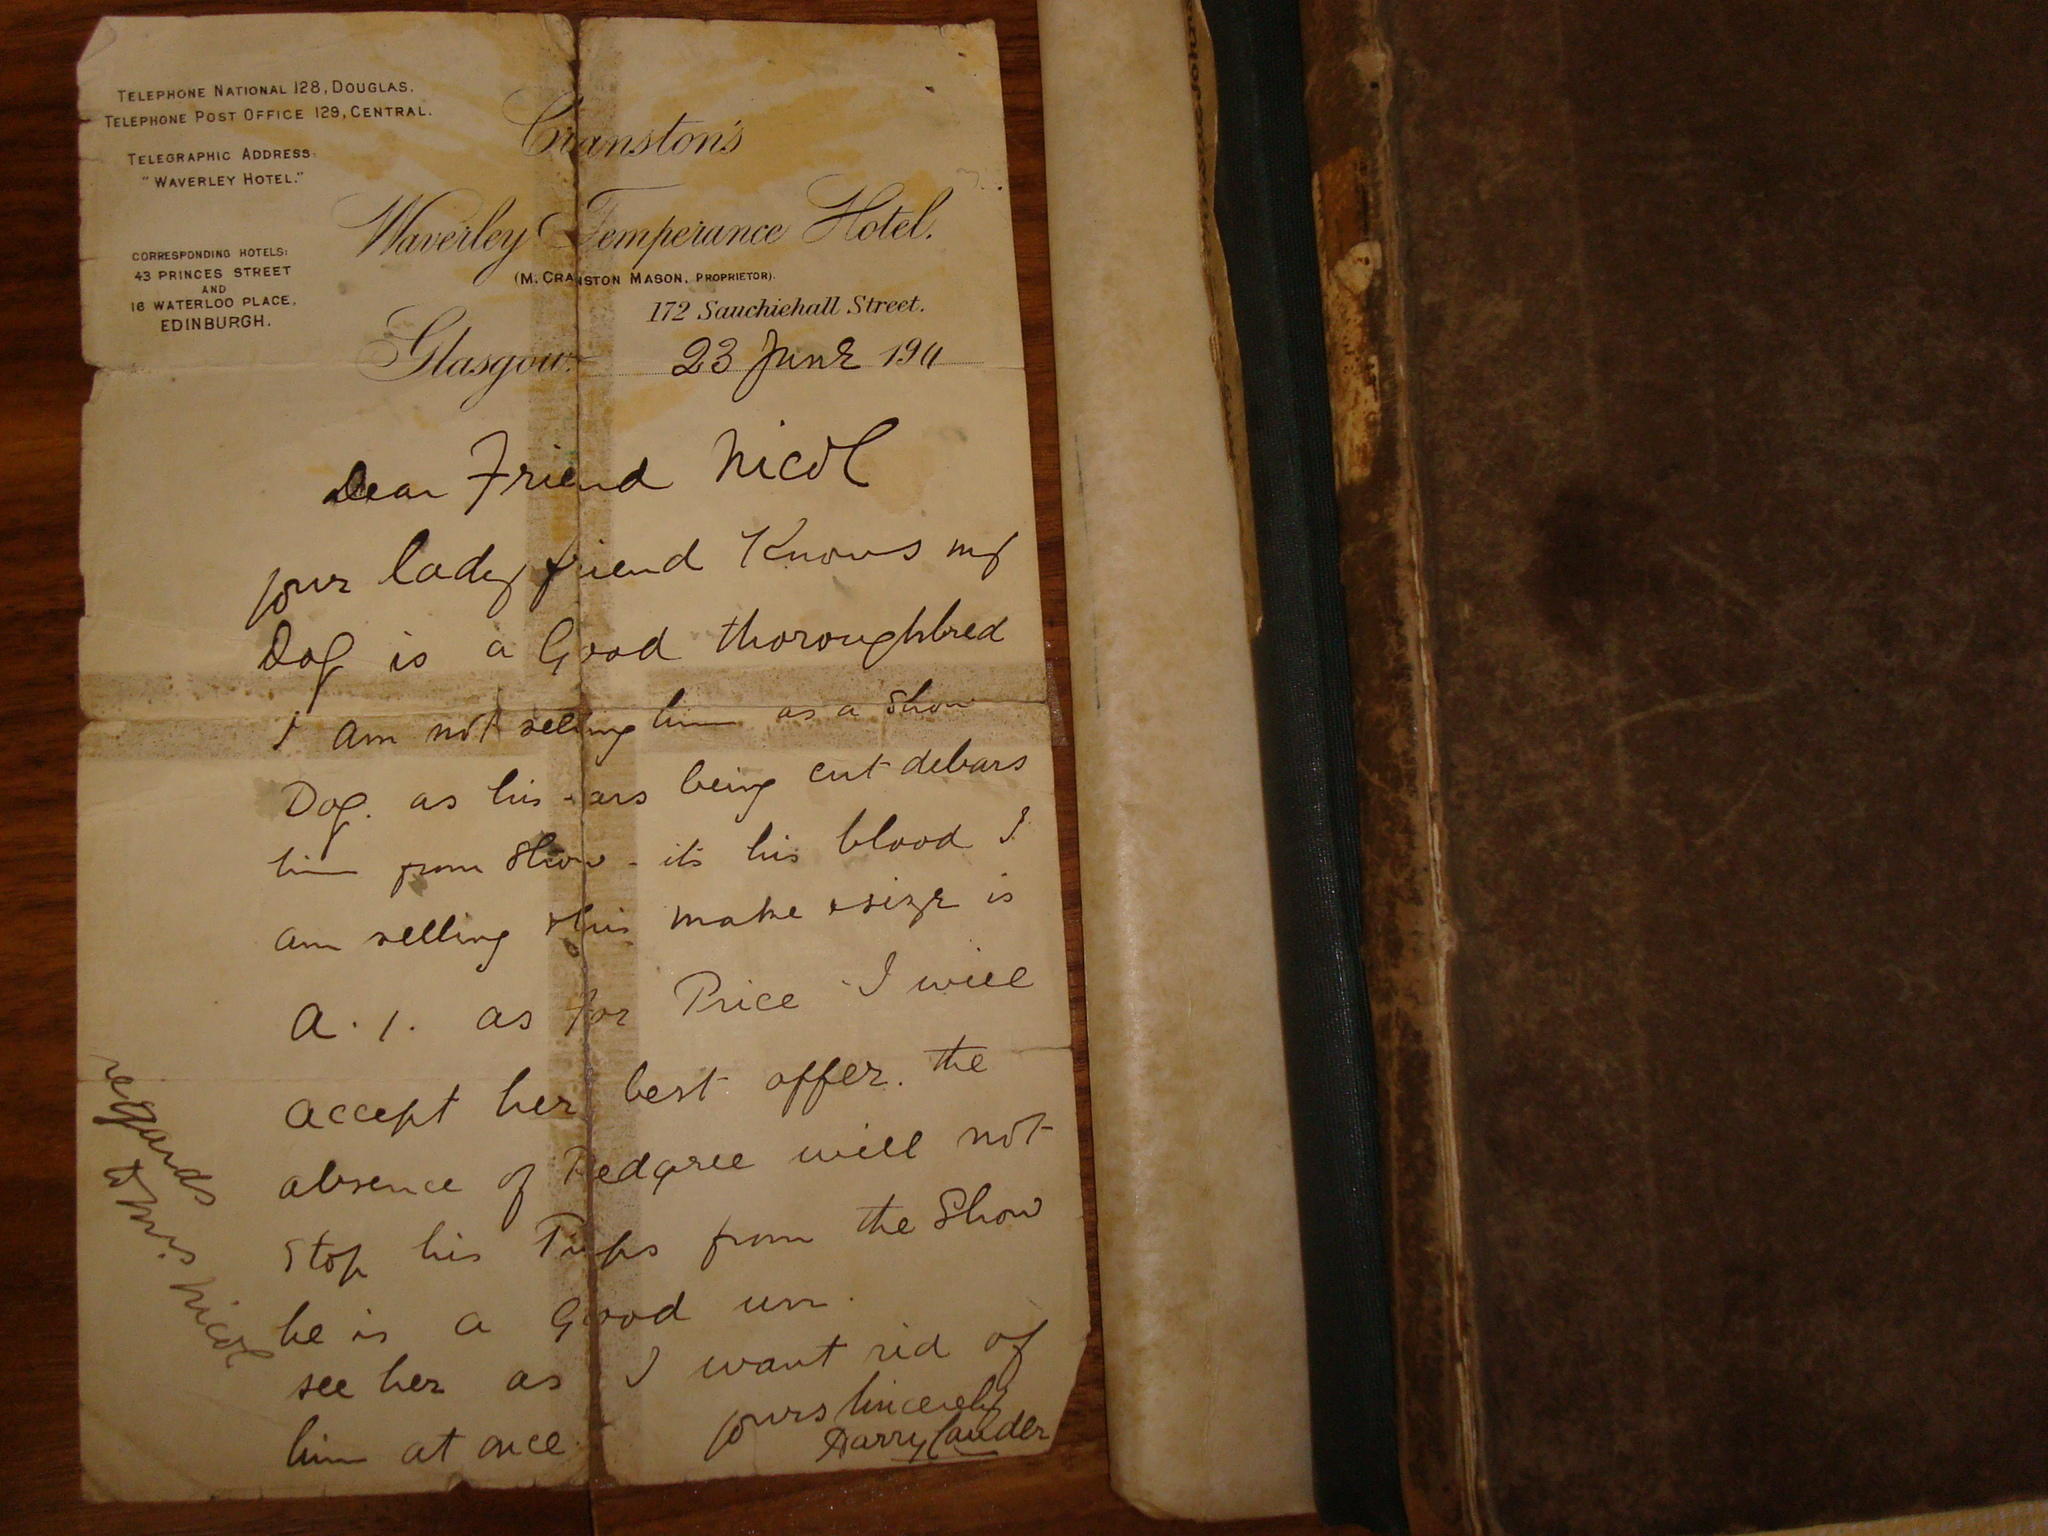 TELEPHONE NATIONAL 128, DOUGLAS.
TELEPHONE POST OFFICE 129, CENTRAL.
TELEGRAPHIC ADDRESS:
"WAVERLEY HOTEL."
CORRESPONDING HOTELS:
43 PRINCES STREET
AND
16 WATERLOO PLACE,
EDINBURGH.
Cranston's
Waverley Temperance Hotel.
(M. CRANSTON MASON, PROPRIETOR).
172 Sauchiehall Street.
Glasgow. 23 June 1911
Dear Friend Nicol
your lady friend Knows my
Dog is a Good thoroughbred
I am not selling him as a Show
Dog. as his ears being cut debars
him from Show - its his blood I
am selling this make & size is
A.1. as for Price I will
accept her best offer. the
absence of Pedgree will not
stop his Pups from the Show
he is a Good un.
see her as I want rid of
him at once
yours Sincerely
Harry Lauder
regards
to Mrs Nicol